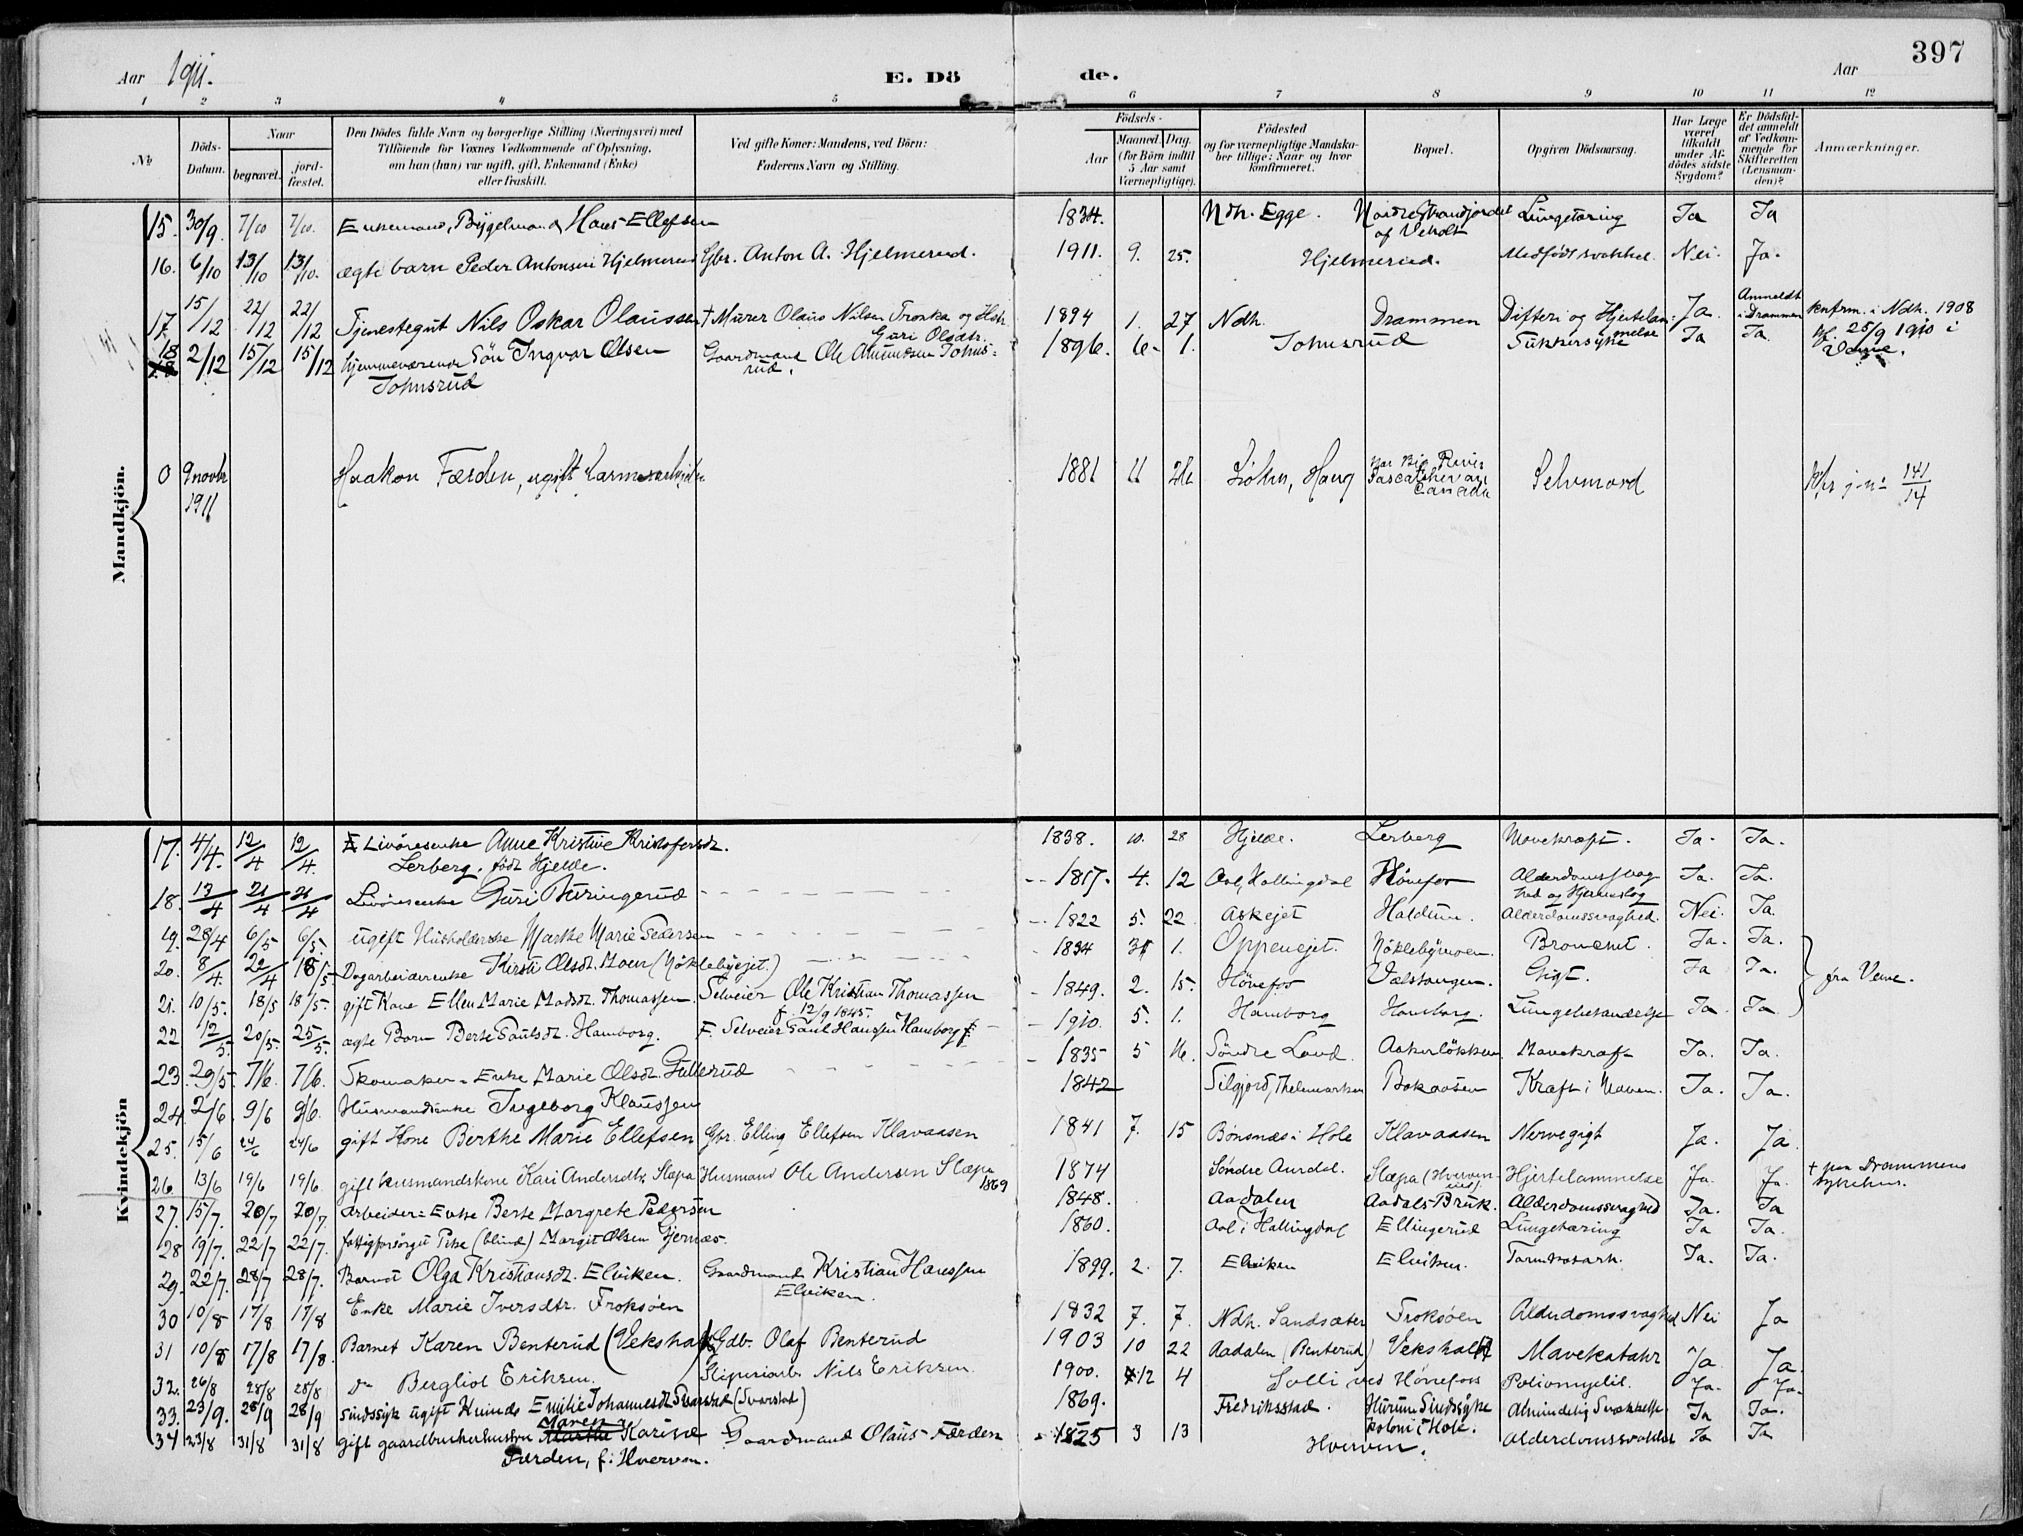 Aar 1911. E. Dö de. Aar 397
1 2 3 4 5 6 7 8 9 10 11 12
No
Döds-Datum.
Naar
begravet.
jord-fæstet.
Den Dödes fulde Navn og borgerlige Stilling (Næringsvei) med
Tilföiende for Voxnes Vedkommende af Oplysning,
om han (hun) var ugift, gift, Enkemand (Enke)
eller fraskilt.
Ved gifte Koner: Mandens, ved Börn:
Faderens Navn og Stilling.
Födsels-
Aar
Maaned. Dag.
(for Börn indtil
5 Aar samt
Værnepligtige).
Födested
og for værnepligtige Mandska-
ber tillige: Naar og hvor
konfirmeret.
Bopæl.
Opgiven Dödsaarsag.
Har Læge
været
tilkaldt
under Af-
dödes sidste
Sygdom?
Er Dödsfal-
det anmeldt
af Vedkom-
mende for
Skifteretten
(Lensman-
den)?
Anmærkninger.
Mandkjön.
15. 30/9 7/10 7/10. Enkemand, Bygelmand Hans Ellefsen 1834. Ndh. Egge. Nordre Strandjordet Lungetæring Ja Ja
af Veholt
16. 6/10 13/10 13/10. ægte barn Peder Antonsen Hjelmerud Gbr. Anton A. Hjelmerud. 1911. 9. 25. Hjelmerud. Medfödt svakhet. Nei. Ja.
17. 15/12 22/12 22/12 Tjenestegut Nils Oskar Olaussen + Murer Olaus Nilsen Tronka og Hst 1894 1. 27 Ndh. Drammen Difteri og Hjertelam- Ja. Anmeldt i Drammen knfrm. i Ndh. 1908
Guri Olsdtr. melse
18 2/12 15/12 15/12 hjemmeværende Sön Ingvar Olsen Gaardmand Ole Amundsen Johns- 1896. 6. 1. Johnsrud Sukkersyke Ja Ja. kf. 25/9 1910 i
Johnsrud rud. Veme.
0 9 novbr Haakon Færden, ugift farmarbeider 1881 11 26 Löken, Haug nær Big River Selvmord Kfr j-n: 141/14
1911 Sascatchevan
Canada
Kvindekjön
17. 4/4. 12/4 12/4. Livöresenke Anne Kristine Kristofersdt. 1838. 10. 28 Hjelde. Lerberg Mavekræft. Ja. Ja.
Lerberg. født Hjelde.
18. 13/4 21/4 21/4 Livöresenke Guri Buringerud 1817. 4. 12 Aal, Hallingdal Hönefos Alderdomssvag Ja. Ja.
hed og Hjerneslag
19. 28/4 6/5 6/5. ugift Husholderske Marthe Marie Pedersen 1822 5. 22 Askejet Haldum. Alderdomssvaghed. Nei. Ja.
20. 8/4. 22/4 18/5 Dagarbeiderenke Kirsti Olsdt. Moen (Nöklebyejet.) 1834 1. Oppenejet. Nöklebymoen. Bronchit. Ja. Ja.
21. 10/5. 18/5 18/5. gift Kone Ellen Marie Madsdt. Thomassen. Selveier Ole Kristian Thomassen 1849. 2. 15. Hönefos Vælstangen. Gigt. Ja Ja. fra Veme.
f. 12/9 1845.
22 12/5. 20/5. 25/5. ægte Barn Berte Paulsdt. Hamborg. F. Selveier Paul Hansen Hamborg 1910. 5. 1. Hamborg Hamborg. Lungebetændelse Ja. Ja.
23. 29/5. 7/6. 7/6. Skomaker-Enke Marie Olsdt. Gullerud 1835 5 16. Söndre Land. Aakerlökken Mavekræft Ja. Ja.
24. 2/6. 9/6 9/6. Husmandsenke Ingeborg Klaussen 1842 Silgjord, Thelemarken Bakaasen Kræft i Maven. Ja. Ja.
25. 15/6 24/6 24/6 gift Kone Berthe Marie Ellefsen Gbr. Elling Ellefsen Klavaasen 1841 7. 15 Bönsnæs i Hole Klavaasen Nervegigt Ja. Ja.
26. 13/6 19/6 19/6. gift husmandskone Kari Andersdtr. Slæpa Husmand Ole Andersen Slæpa 1869 1874 Söndre Aurdal. Slæpa (Hverven- Hjertelammelse Ja. Ja. + paa Drammens
eiet). sykehus.
27. 15/7. 20/7 20/7. Arbeider-Enke Berte Margrete Pedersen 1848. Aadalen Aadals-Bruk. Alderdomssvaghed Ja. Ja
28 19/7. 22/7 22/7. fattigforsörget Pike (blind) Margit Olsen Gjernæs. 1860. Aal i Hallingdal Ellingerud Lungetæring Ja Ja.
29. 22/7. 28/7 28/7. Barnet Olga Kristiansdt. Elviken. Gaardmand Kristian Hanssen 1899. 2. 7. Elviken Elviken. Tarmkatarh. Ja. Ja.
Elviken.
30 10/8 17/8 17/8 Enke Marie Iversdtr. Froksöen 1832 7. 7. Ndh. Sandsæter Froksöen Alderdomssvaghed Nei Ja
31 10/8 17/8 17/8. Barnet Karen Benterud (Vekshall) Gdb. Olaf Benterud 1903 10 22 Aadalen (Benterud) Vekshall Mavekatahr Ja Ja.
32. 26/8 28/8 28/8 D- Bergliot Eriksen. Sliperiarb. Nils Eriksen 1900. 12 4 Solli ved Hönefoss Poliomyelit. Ja. Ja.
33. 23/9. 28/9 28/9 Sindssyk ugift Kvinde Emilie Johannesdt Svarstad (Svarstad) 1869. Fredriksstad. Hurum Sindssyke Almindelig Svækkelse. Ja Ja.
koloni i Hole.
34 23/8 31/8 31/8 gift gaardbrukerhustru Maren Karine Gaardmand Olaus Færden 1825 3 13 Hverven. Alderdomssvakhet Ja Ja
Færden, f: Hverven.